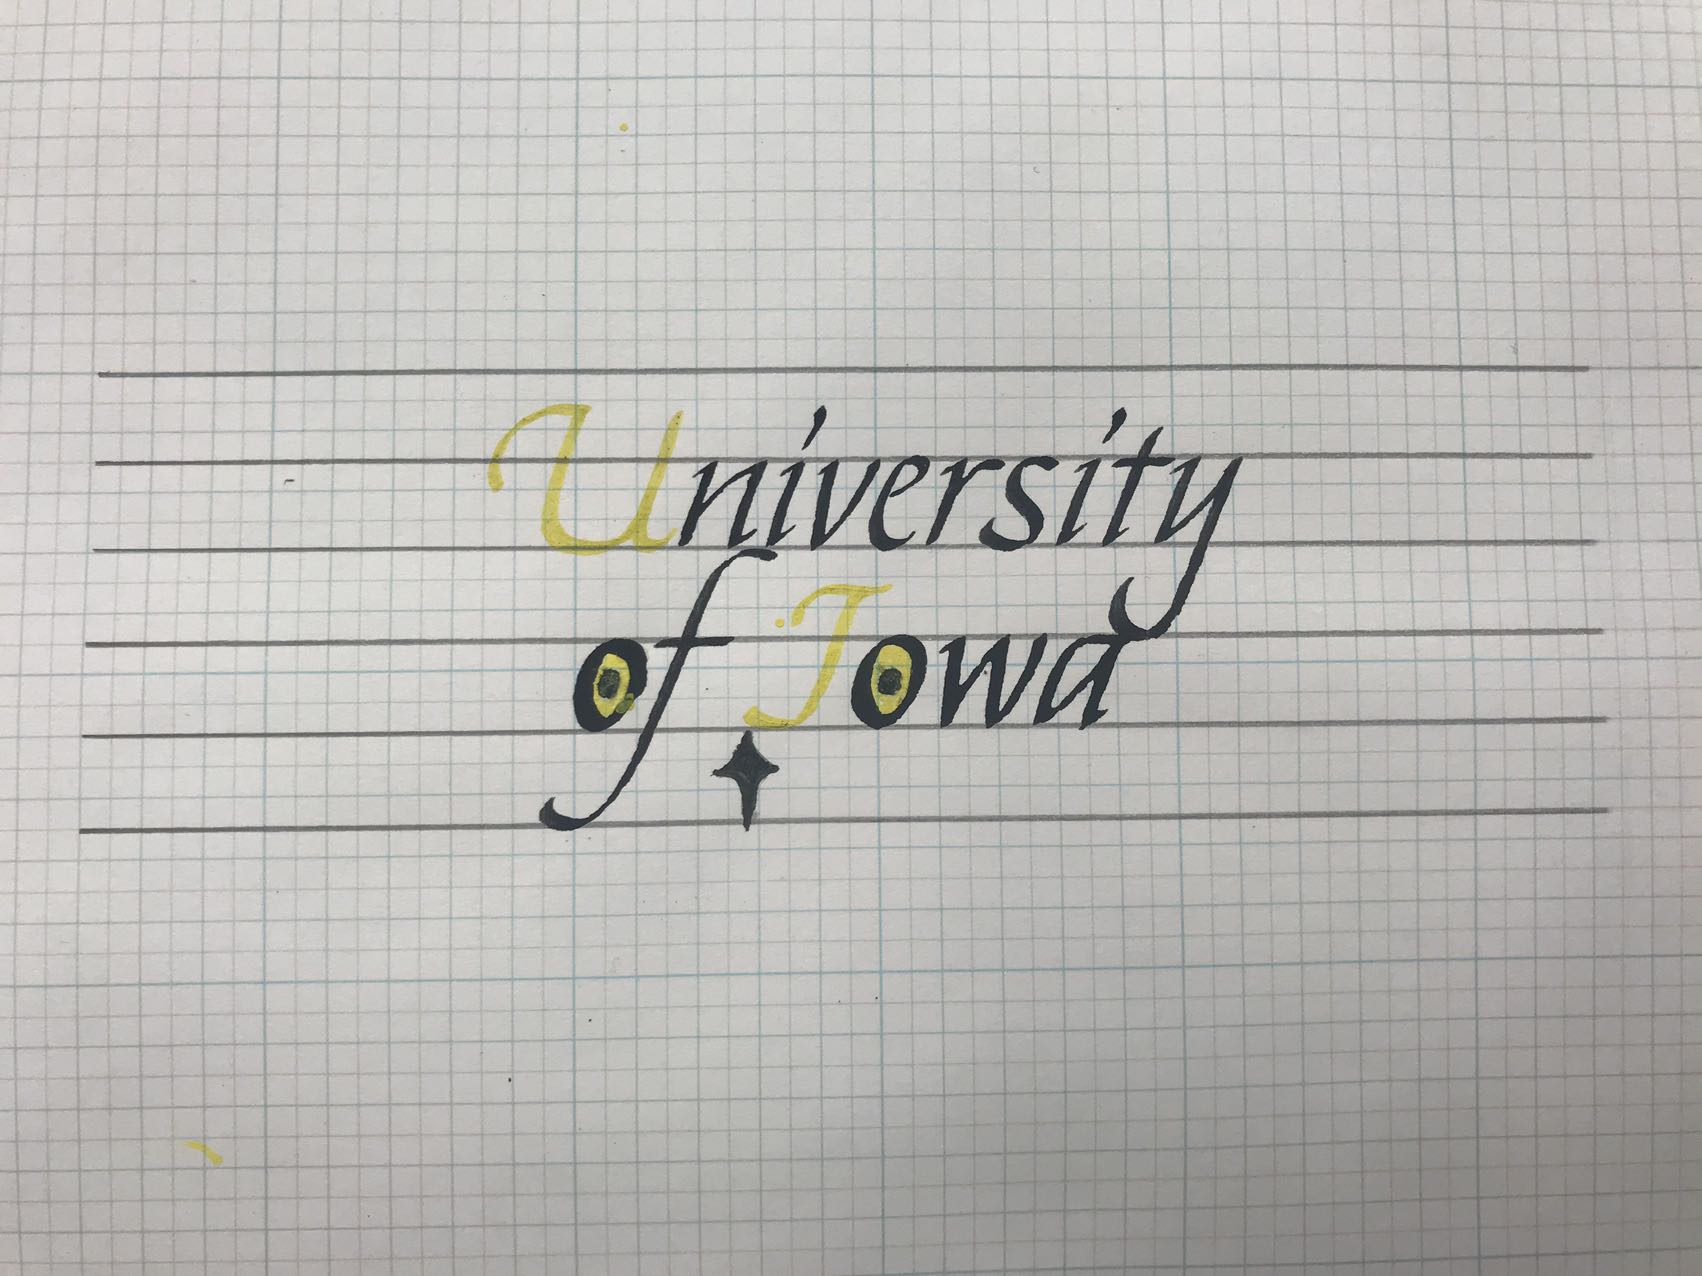 University
of Iowa